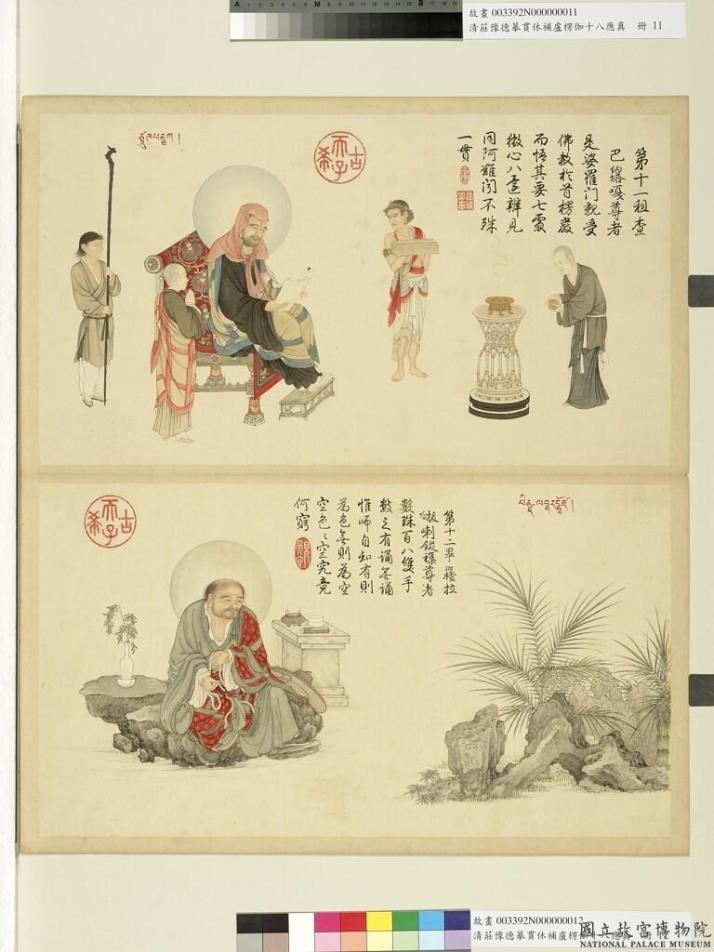 故畫 003392N000000011
清莊豫德摹貫休補盧楞伽十八應真 冊 11
第十一租查
巴嘎尊者
是婆羅門親受
佛教於首楞嚴
而悟其要七處
徵心八還辨見
同阿難問不殊
一貫
古希天子
第十二畢拉
喇尊者
數珠百八雙手
數之有誦無誦
惟師自知有則
為色無則為空
空色々空究竟
何窮
古希天子
故畫 003392N000000012
清莊豫德摹貫休補盧楞伽十八應真
國立故宮博物院
NATIONAL PALACE MUSEUM